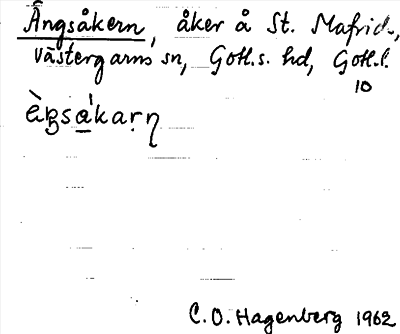 Ängsåkern, åker å St. Mafrids,
Västergarns sn, Gotl.s. hd, Gotl.l.
10
C.O. Hagenberg 1962